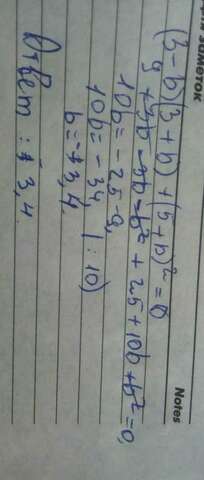 для заметок
(3-b)(3+b)+(5+b)²=0
9+3b-3b-b²+25+10b+b²=0,
10b=-25-9,
10b=-34, |:10)
b=-3,4.
Ответ: -3,4.
Notes